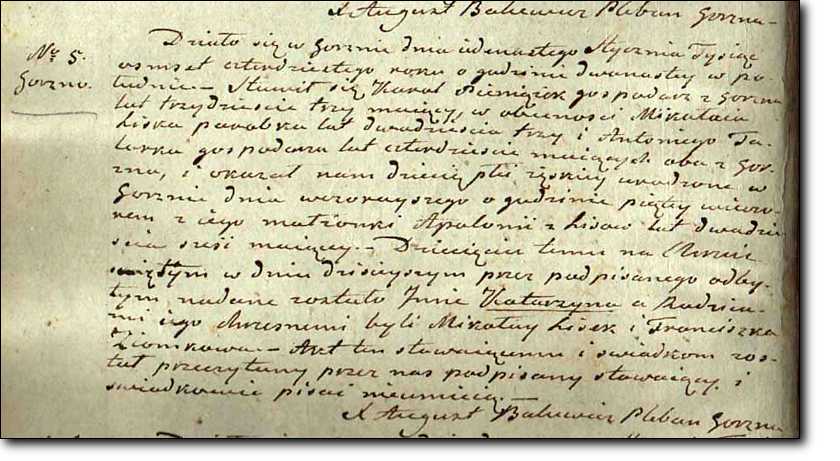 X August Baliewicz Pleban Gorzna
No 5.
Gorzno.
Działo się w Gorznie dnia iedenastego Stycznia Tysiąc
osmset czterdziestego roku o godzinie dwunastey w po-
łudnie. – Stawił się Karol Pieniążek gospodarz z Gorzna
lat trzydzieści trzy maiący, w obecności Mikołaia
Liska parobka lat dwadzieścia trzy i Antoniego
gospodarza lat czterdzieści maiących oba z Gor-
zna, i okazał nam dziecię płci żęskiey urodzone w
Gorznie dnia wczorayszego o godzinie piątey wieczo-
rem z iego małżonki Apolonii z Lisow lat dwadzie-
ścia sześć maiącey. – Dziecięciu temu na Chrzcie
świętym w dniu dzisieyszym przez podpisanego odby-
tym nadane zostało Imie Katarzyna a Rodzica-
mi iego chrzesnemi byli Mikołay Lisek i Franciszka
Ziomkowa. – Akt ten stawaiącemu i swiadkom zos-
tał przeczytany przez nas podpisany stawaiący i
swiadkowie pisać nieumieią. –
X August Baliewicz Pleban Gorzna